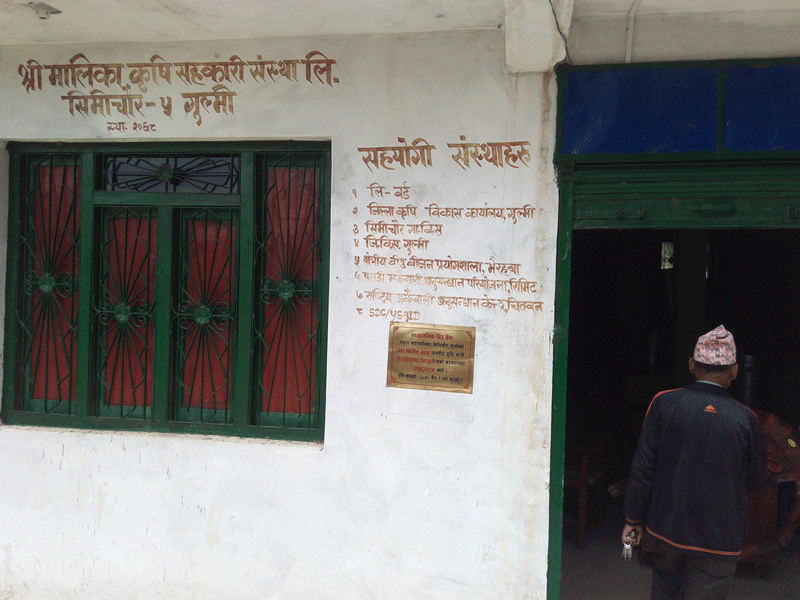 श्री मालिका कृषि सहकारी संस्था लि.
सिमीचौर - ५ गुल्मी
स्था- २०६८
सहयोगी संस्थाहरु
१ लि- बर्ड
२ जिल्ला कृषि विकास कार्यालय, गुल्मी
३ सिमीचौर गा.वि.स
४ जि.वि.स. गुल्मी
५ क्षेत्रीय बीउ बीजन प्रयोगशाला, भैरहवा
६ पहाडी मकैबाली अनुसन्धान परियोजना, सिमिट
७ राष्ट्रिय मकैबाली अनुसन्धान केन्द्र, चितवन
८ SDC/USAID